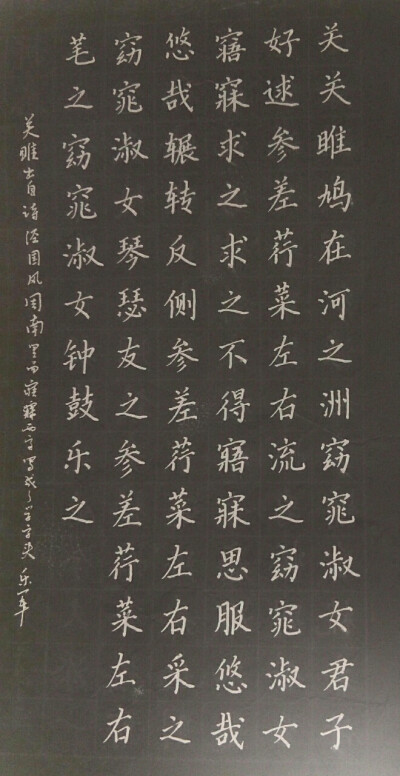 关关雎鸠在河之洲窈窕淑女君子
好逑参差荇菜左右流之窈窕淑女
寤寐求之求之不得寤寐思服悠哉
悠哉辗转反侧参差荇菜左右采之
窈窕淑女琴瑟友之参差荇菜左右
芼之窈窕淑女钟鼓乐之
关雎诗经国风周南